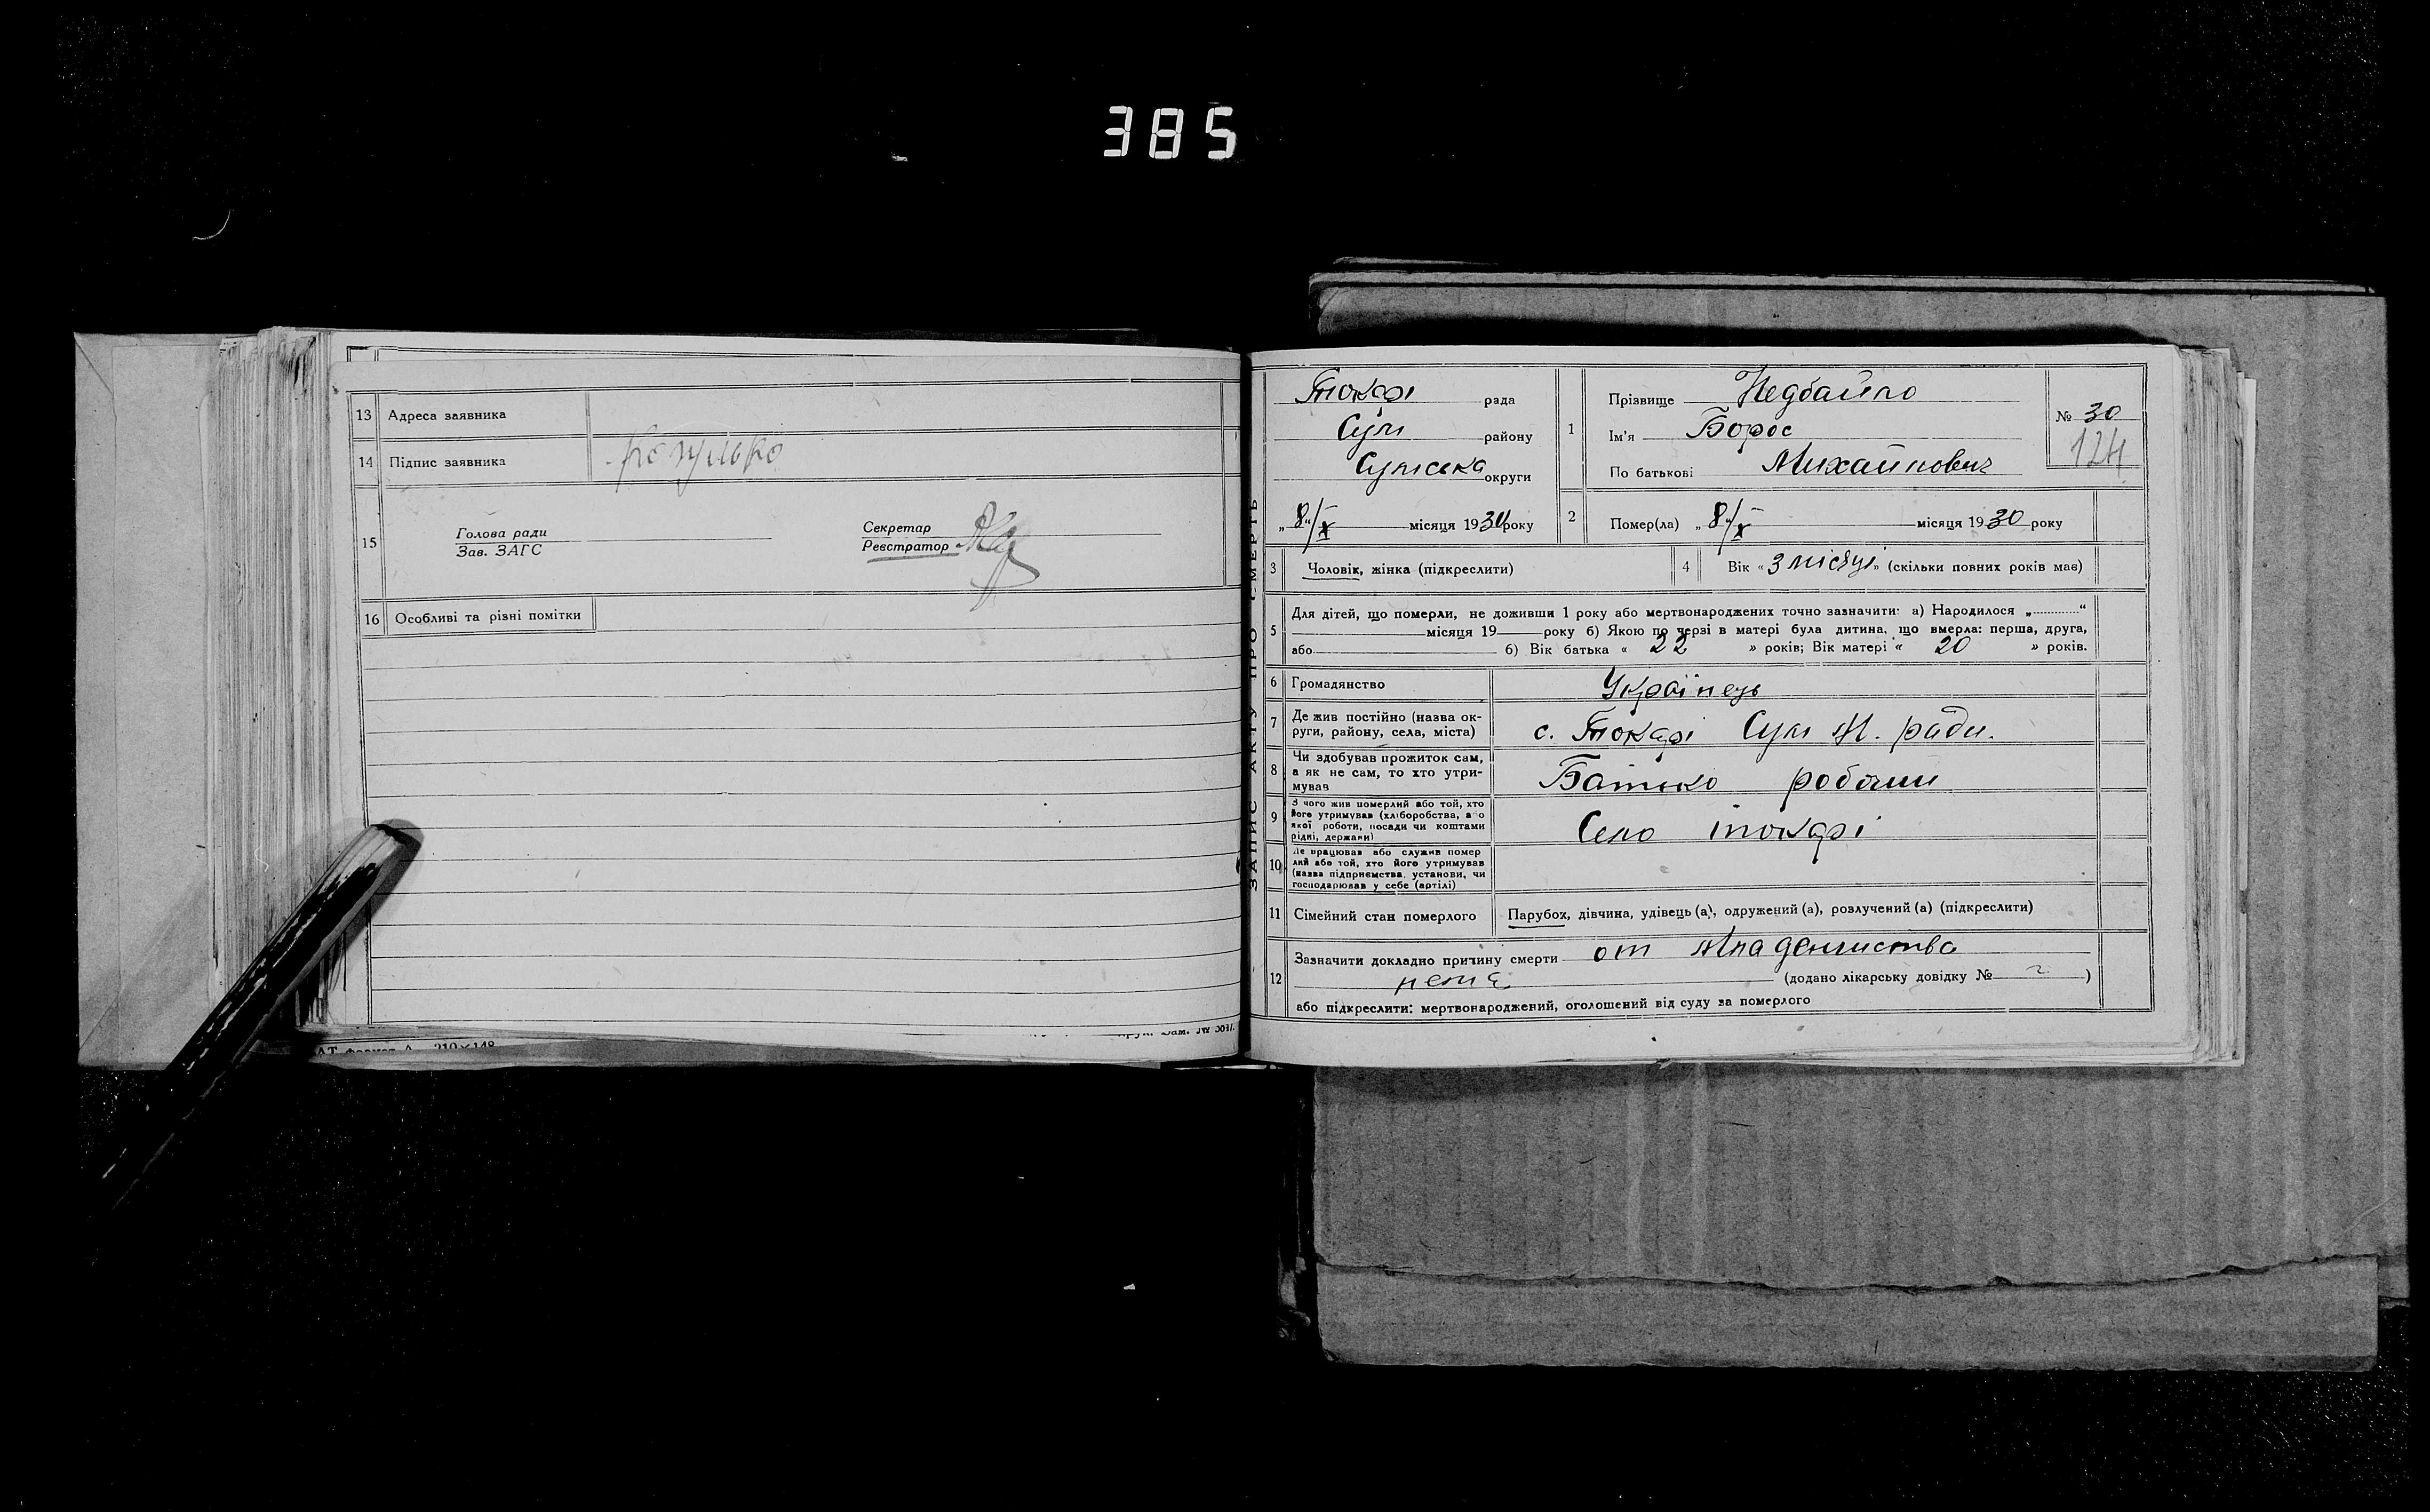 385
13 Адреса заявника
14 Підпис заявника
15 Голова ради
Зав. ЗАГС
Секретар
Реєстратор
16 Особливі та різні помітки
ЗАПИС АКТУ ПРО СМЕРТЬ
Токарі рада
Сум району
Сумська округи
„8“/X місяця 1930 року
1 Прізвище Недбайло
Ім'я Борос
По батькові Михайлович
№ 30
124
2 Помер(ла) „8“/X місяця 1930 року
3 Чоловік, жінка (підкреслити)
4 Вік «3 місяці» (скільки повних років має)
5 Для дітей, що померли, не доживши 1 року або мертвонароджених точно зазначити: а) Народилося „ “
місяця 19 року б) Якою по черзі в матері була дитина, що вмерла: перша, друга,
або б) Вік батька « 22 » років; Вік матері « 20 » років.
6 Громадянство Українець
7 Де жив постійно (назва ок-
руги, району, села, міста) с. Токарі Сум М. ради.
8 Чи здобував прожиток сам,
а як не сам, то хто утри-
мував Батько
9 З чого жив померлий або той, хто
його утримував (хліборобства, або
якої роботи, посади чи коштами
рідні, держави) Село токарі
10 Де працював або служив помер
лий або той, хто його утримував
(назва підприємства, установи, чи
господарював у себе (артілі)
11 Сімейний стан померлого Парубох, дівчина, удівець (а), одружений (а), розлучений (а) (підкреслити)
12 Зазначити докладно причину смерти от Младенчиства
нема (додано лікарську довідку № )
або підкреслити: мертвонароджений, оголошений від суду за померлого